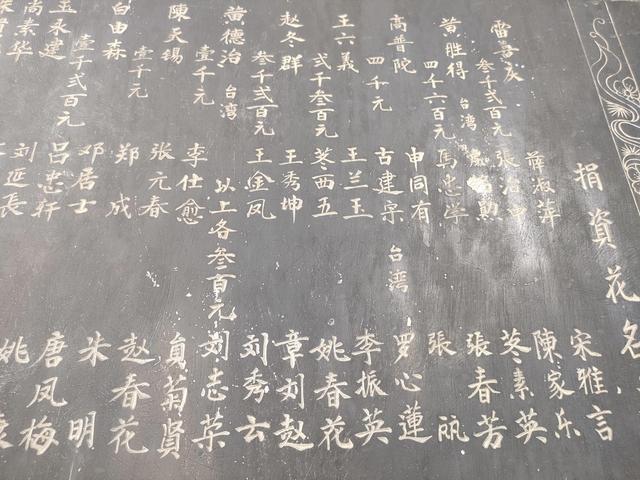 捐資花名
雷喜庆
叁千弍百元
黄胜得
四千六百元
高普陀
四千元
王六義
弍千叁百元
赵冬群
叁千弍百元
黄德治
台湾
壹千元
陳天锡
壹千元
白由森
王永建
壹千弍百元
尚素华
薛淑萍
台湾
馬忠学
申同有
古建宗
王兰玉
西五
王秀坤
王金凤
以上各叁百元
李仕愈
张元春
郑成
邓居士
吕忠轩
刘延長
宋雅言
陳家乐
素英
張春芳
張丽
台湾
罗心蓮
李振英
姚春花
章刘赵
刘秀云
刘志荣
貟菊賢
赵春花
朱明
唐凤梅
姚